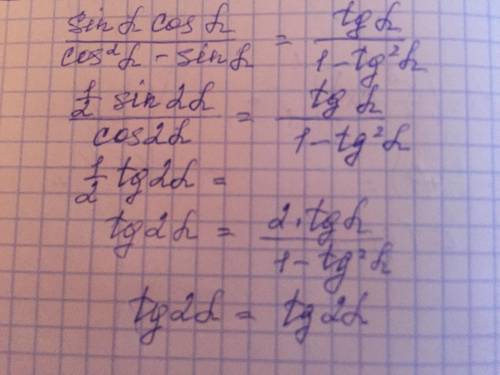 sin α cos α / cos²α - sin α = tg α / 1 - tg²α
1/2 sin 2α / cos 2α = tg α / 1 - tg²α
1/2 tg 2α =
tg 2α = 2 · tg α / 1 - tg²α
tg 2α = tg 2α